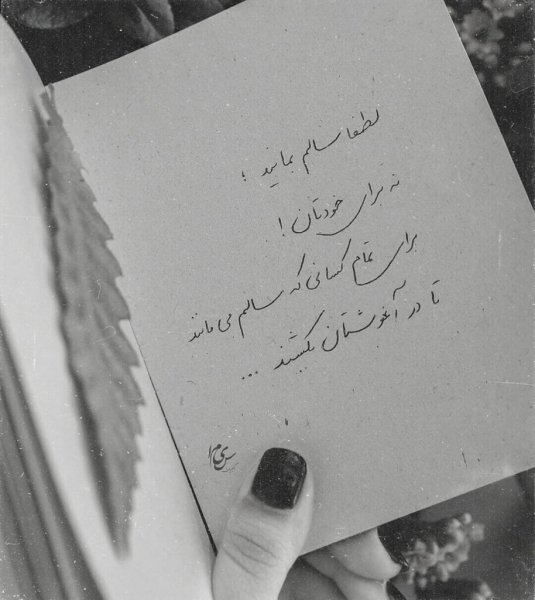 لطفا سالم بمانید ؛
نه برای خودتان !
برای تمام کسانی که سالم می مانند
تا در آغوشتان بکشند ...